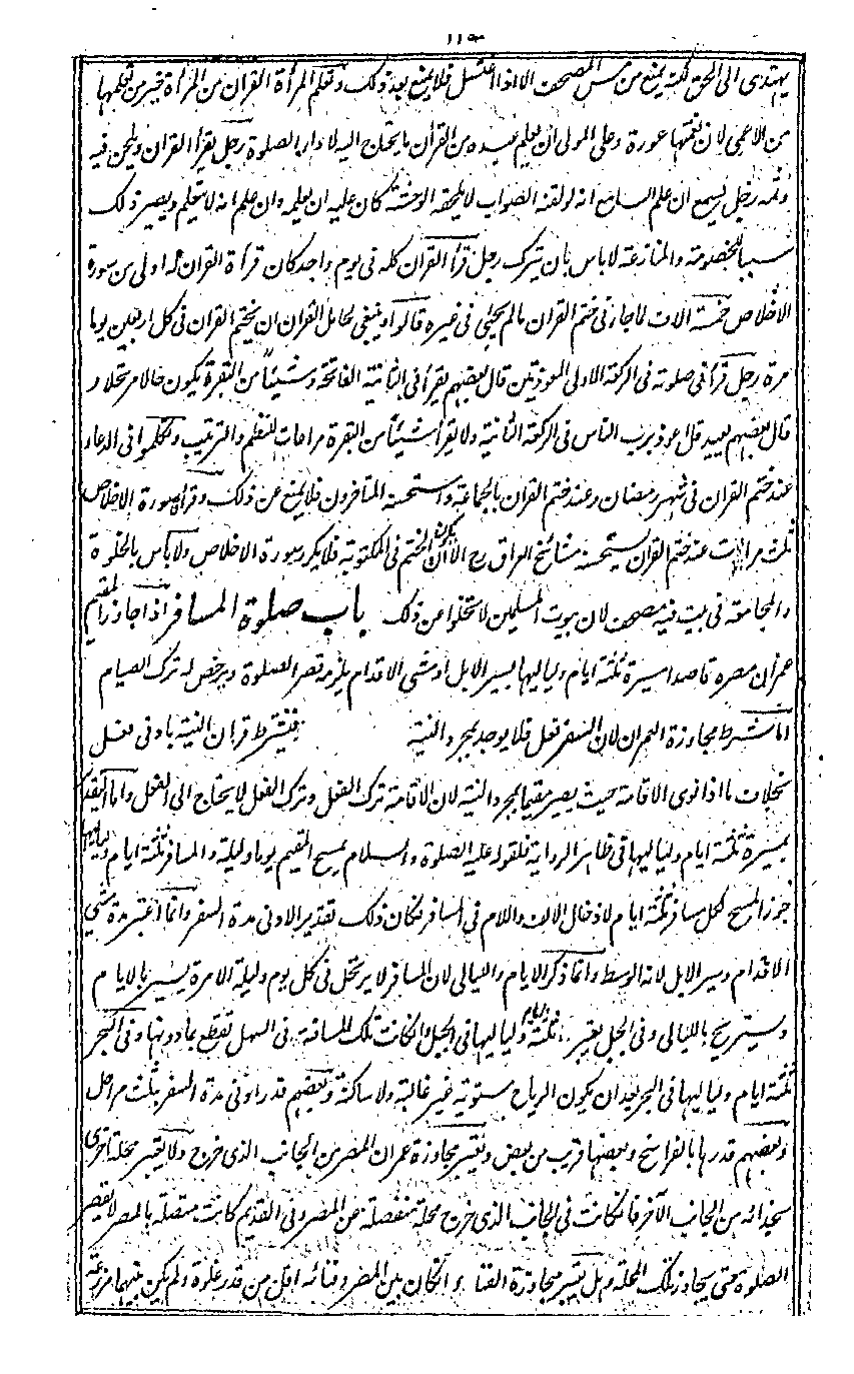 يهتدى الى الحق لكنه يمنع من مس المصحف الا اذا اغتسل فلا يمنع بعد ذلك وتعلم المرأة القران من المرأة خير من تعلمها
من الاعمى لان نغمتها عورة وعلى المولى ان يعلم عبده من القرآن ما يحتاج اليه لاداء الصلوة رجل يقرأ القران ويلحن فيه
وثمه رجل يسمع ان علم السامع انه لو لقنه الصواب لا يلحقه الوحشة كان عليه ان يعلمه وان علم انه لا يتعلم ويصير ذلك
سببا للخصومة والمنازعة لا باس بان يترك رجل قرأ القران كله فى يوم واحد كان قرأة القران له اولى من سورة
الاخلاص خمسة الاف لما جاز فى ختم القران مالم يجئ فى غيره قالوا وينبغى لحامل القران ان يختم القران فى كل اربعين يوما
مرة رجل قرأ فى صلوته فى الركعة الاولى المعوذتين قال بعضهم يقرأ فى الثانية الفاتحة وشيئاً من البقرة يكون حالا مرتحلا و
قال بعضهم يعيد قل اعوذ برب الناس فى الركعة الثانية ولا يقرأ شيئاً من البقرة مراعات للنظم والترتيب وتكلموا فى الدعاء
عند ختم القران فى شهر رمضان وعند ختم القران بالجماعة واستحسنه المتاخرون فلا يمنع عن ذلك وقرأة سورة الاخلاص
ثلث مرات عند ختم القران يستحسنه مشائخ العراق رح الا ان يكون الختم فى المكتوبة فلا يكرر سورة الاخلاص ولا باس بالخلوة
والمجامعة فى بيت فيه مصحف لان بيوت المسلمين لا تخلوا عن ذلك باب صلوة المسافر اذا جاوز المقيم
عمران مصره قاصدا مسيرة ثلثة ايام ولياليها بسير الابل او مشى الاقدام يلزمه قصر الصلوة ويرخص له ترك الصيام
اما شرط مجاوزة العمران لان السفر فعل فلا يوجد بمجرد النية فيشترط قران النية بادنى فعل
بخلاف ما اذا نوى الاقامة حيث يصير مقيما بمجرد النية لان الاقامة ترك الفعل وترك الفعل لا يحتاج الى الفعل واما التقدير
بمسيرة ثلثة ايام ولياليها فى ظاهر الرواية فلقوله عليه الصلوة والسلام يمسح المقيم يوما وليلة والمسافر ثلثة ايام ولياليها
جوز المسح لكل مسافر ثلثة ايام لادخال الالف واللام فى المسافر فكان ذلك تقدير الادنى مدة السفر وانما اعتبر مدة مشى
الاقدام وسير الابل لانه الوسط وانما ذكر الايام والليالى لان المسافر لا يرتحل فى كل يوم وليلة الا مرة يسير بالايام
ويستريح بالليالى وفى الجبل يعتبر ثلثة ايام ولياليها فى الجبل وان كانت تلك المسافة فى السهل تقطع بما دونها وفى البحر
ثلثة ايام ولياليها فى البحر بعد ان يكون الرياح مستوية غير غالبة ولا ساكنة وبعضهم قدر ادنى مدة السفر بثلث مراحل
وبعضهم قدرها بالفراسخ وبعضها قريب من بعض ويعتبر مجاوزة عمران المصر من الجانب الذى خرج ولا يعتبر محلة اخرى
بحذائه من الجانب الآخر فان كانت فى الجانب الذى خرج محلة منفصلة عن المصر وفى القديم كانت متصلة بالمصر لا يقصر
الصلوة حتى يجاوز تلك المحلة وهل يعتبر مجاوزة الفناء ان كان بين المصر وفنائه اقل من قدر غلوة ولم يكن بينهما مزرعة